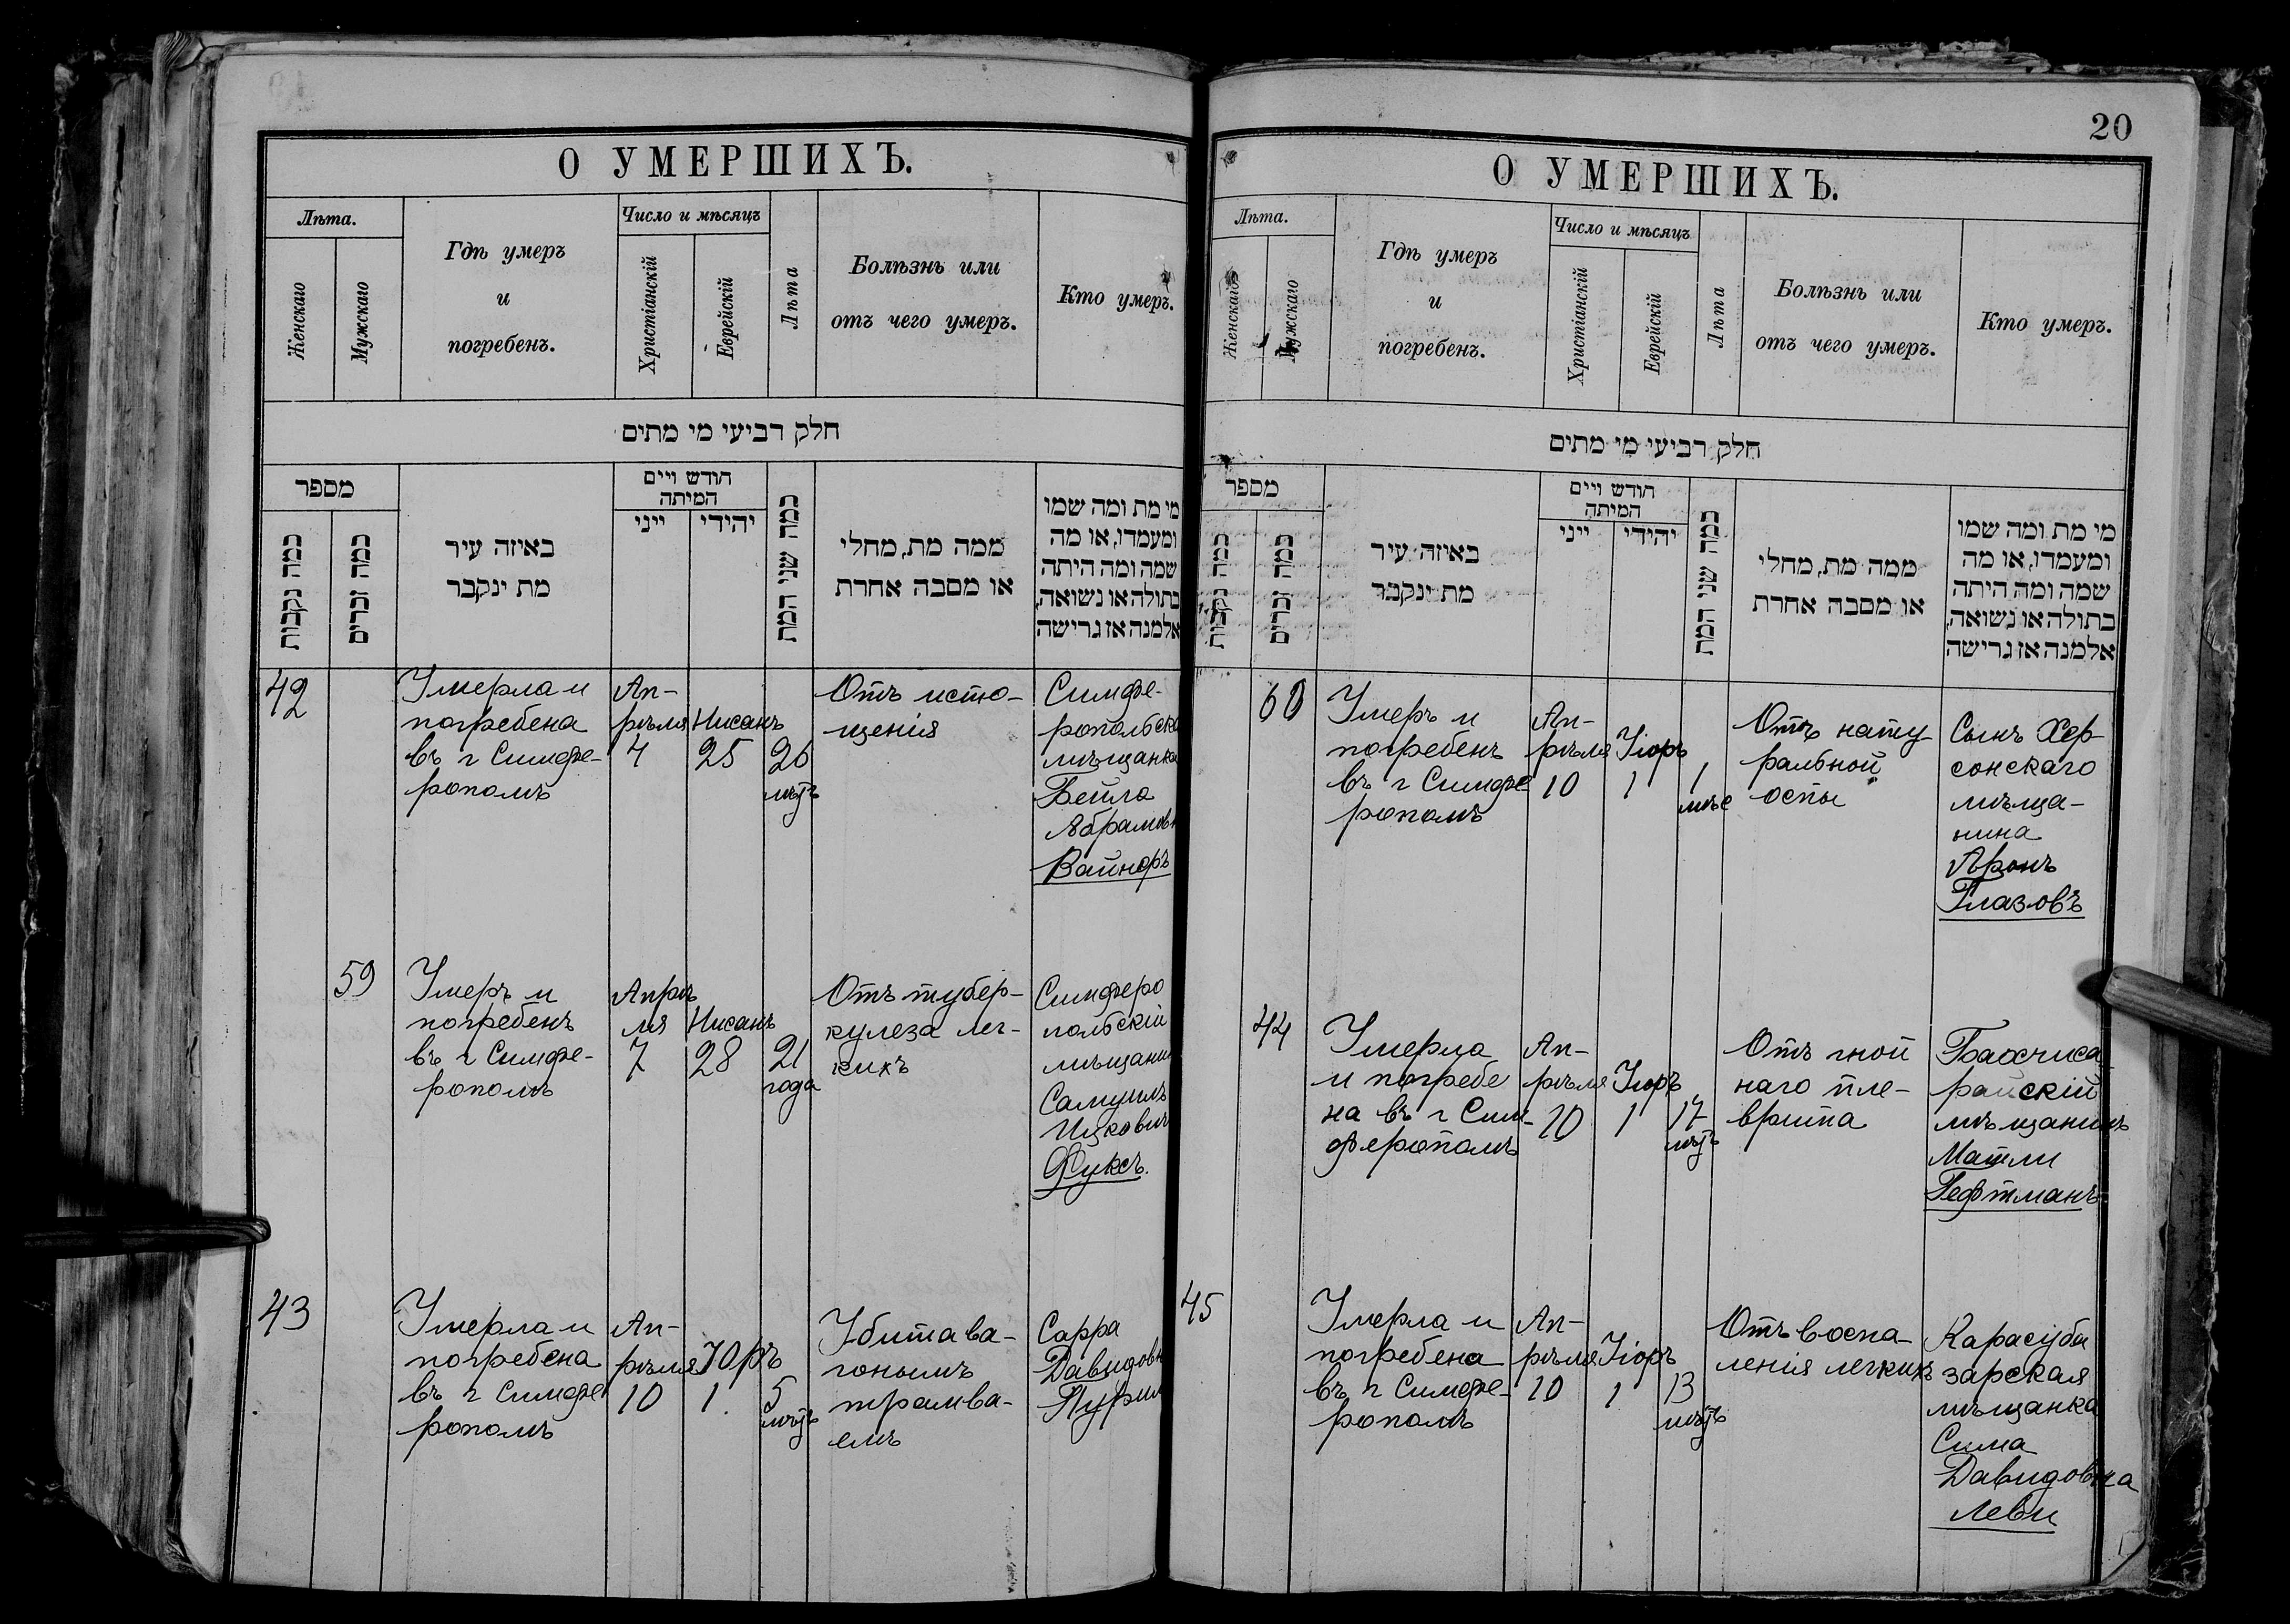 О УМЕРШИХЪ.
Лѣта.
Женскаго
Мужскаго
Гдѣ умеръ
и
погребенъ.
Число и мѣсяцъ
Христіанскій
Еврейскій
Лѣта
Болѣзнь или
отъ чего умеръ.
Кто умеръ.
חלק רביעי מי מתים
מספר
כמה נקבות
כמה זכרים
באיזה עיר
מת ינקבר
חודש ויים
המיתה
ייני
יהודי
כמה שני המת
ממה מת, מחלי
או מסבה אחרת
מי מת ומה שמו
ומעמדו, או מה
שמה ומה היתה
בתולה או נשואה,
אלמנה אז גרישה
42
Умерла и
погребена
въ г Симфе-
рополѣ
Ап-
рѣля
4
Нисанъ
25
26
лѣтъ
Отъ исто-
щенія
Симфе-
ропольска
мѣщанка
Бейла
Абрамовн
Вайнеръ
59
Умеръ и
погребенъ
въ г Симфе-
рополѣ
Апрѣ
ля
7
Нисанъ
28
21
года
Отъ тубер-
кулеза лег-
кихъ
Симферо
польскій
мѣщанин
Самуилъ
Ицкович
Фуксъ.
43
Умерла и
погребена
въ г Симфе
рополѣ
Ап-
рѣля
10
Юръ
1.
5
лѣтъ
Убита ва-
гономъ
трамва-
емъ
Сарра
Давидовн
20
О УМЕРШИХЪ.
Лѣта.
Женскаго
Мужскаго
Гдѣ умеръ
и
погребенъ.
Число и мѣсяцъ
Христіанскій
Еврейскій
Лѣта
Болѣзнь или
отъ чего умеръ.
Кто умеръ.
חלק רביעי מי מתים
מספר
כמה נקבות
כמה זכרים
באיזה עיר
מת ינקבר
חודש ויים
המיתה
ייני
יהודי
כמה שני המת
ממה מת, מחלי
או מסבה אחרת
מי מת ומה שמו
ומעמדו, או מה
שמה ומה היתה
בתולה או נשואה,
אלמנה אז גרישה
60
Умеръ и
погребенъ
въ г Симфе
рополѣ
Ап-
рѣля
10
Іюръ
1
1
мѣс
Отъ нату
ральной
оспы
Сынъ Хер
сонскаго
мѣща-
нина
Аронъ
Глазовъ
44
Умерла
и погребе
на въ г Сим-
ферополѣ
Ап-
рѣля
10
Іюръ
1
17
лѣтъ
Отъ гной
наго пле-
врита
Бахчиса
райскій
мѣщанинъ
Матли
Гефтманъ.
45
Умерла и
погребена
въ г Симфе-
рополѣ
Ап-
рѣля
10
Іюръ
1
13
лѣтъ
Отъ воспа-
ленія легкихъ
Карасуба
зарская
мѣщанка
Сима
Давидовна
Леви